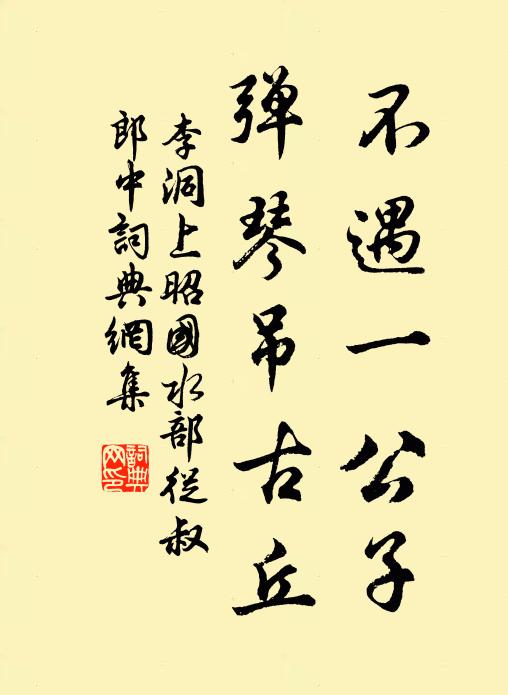 不遇一公子
弹琴吊古丘
李洞上昭國水部從叔
郎中詞典網集
詞典
网印